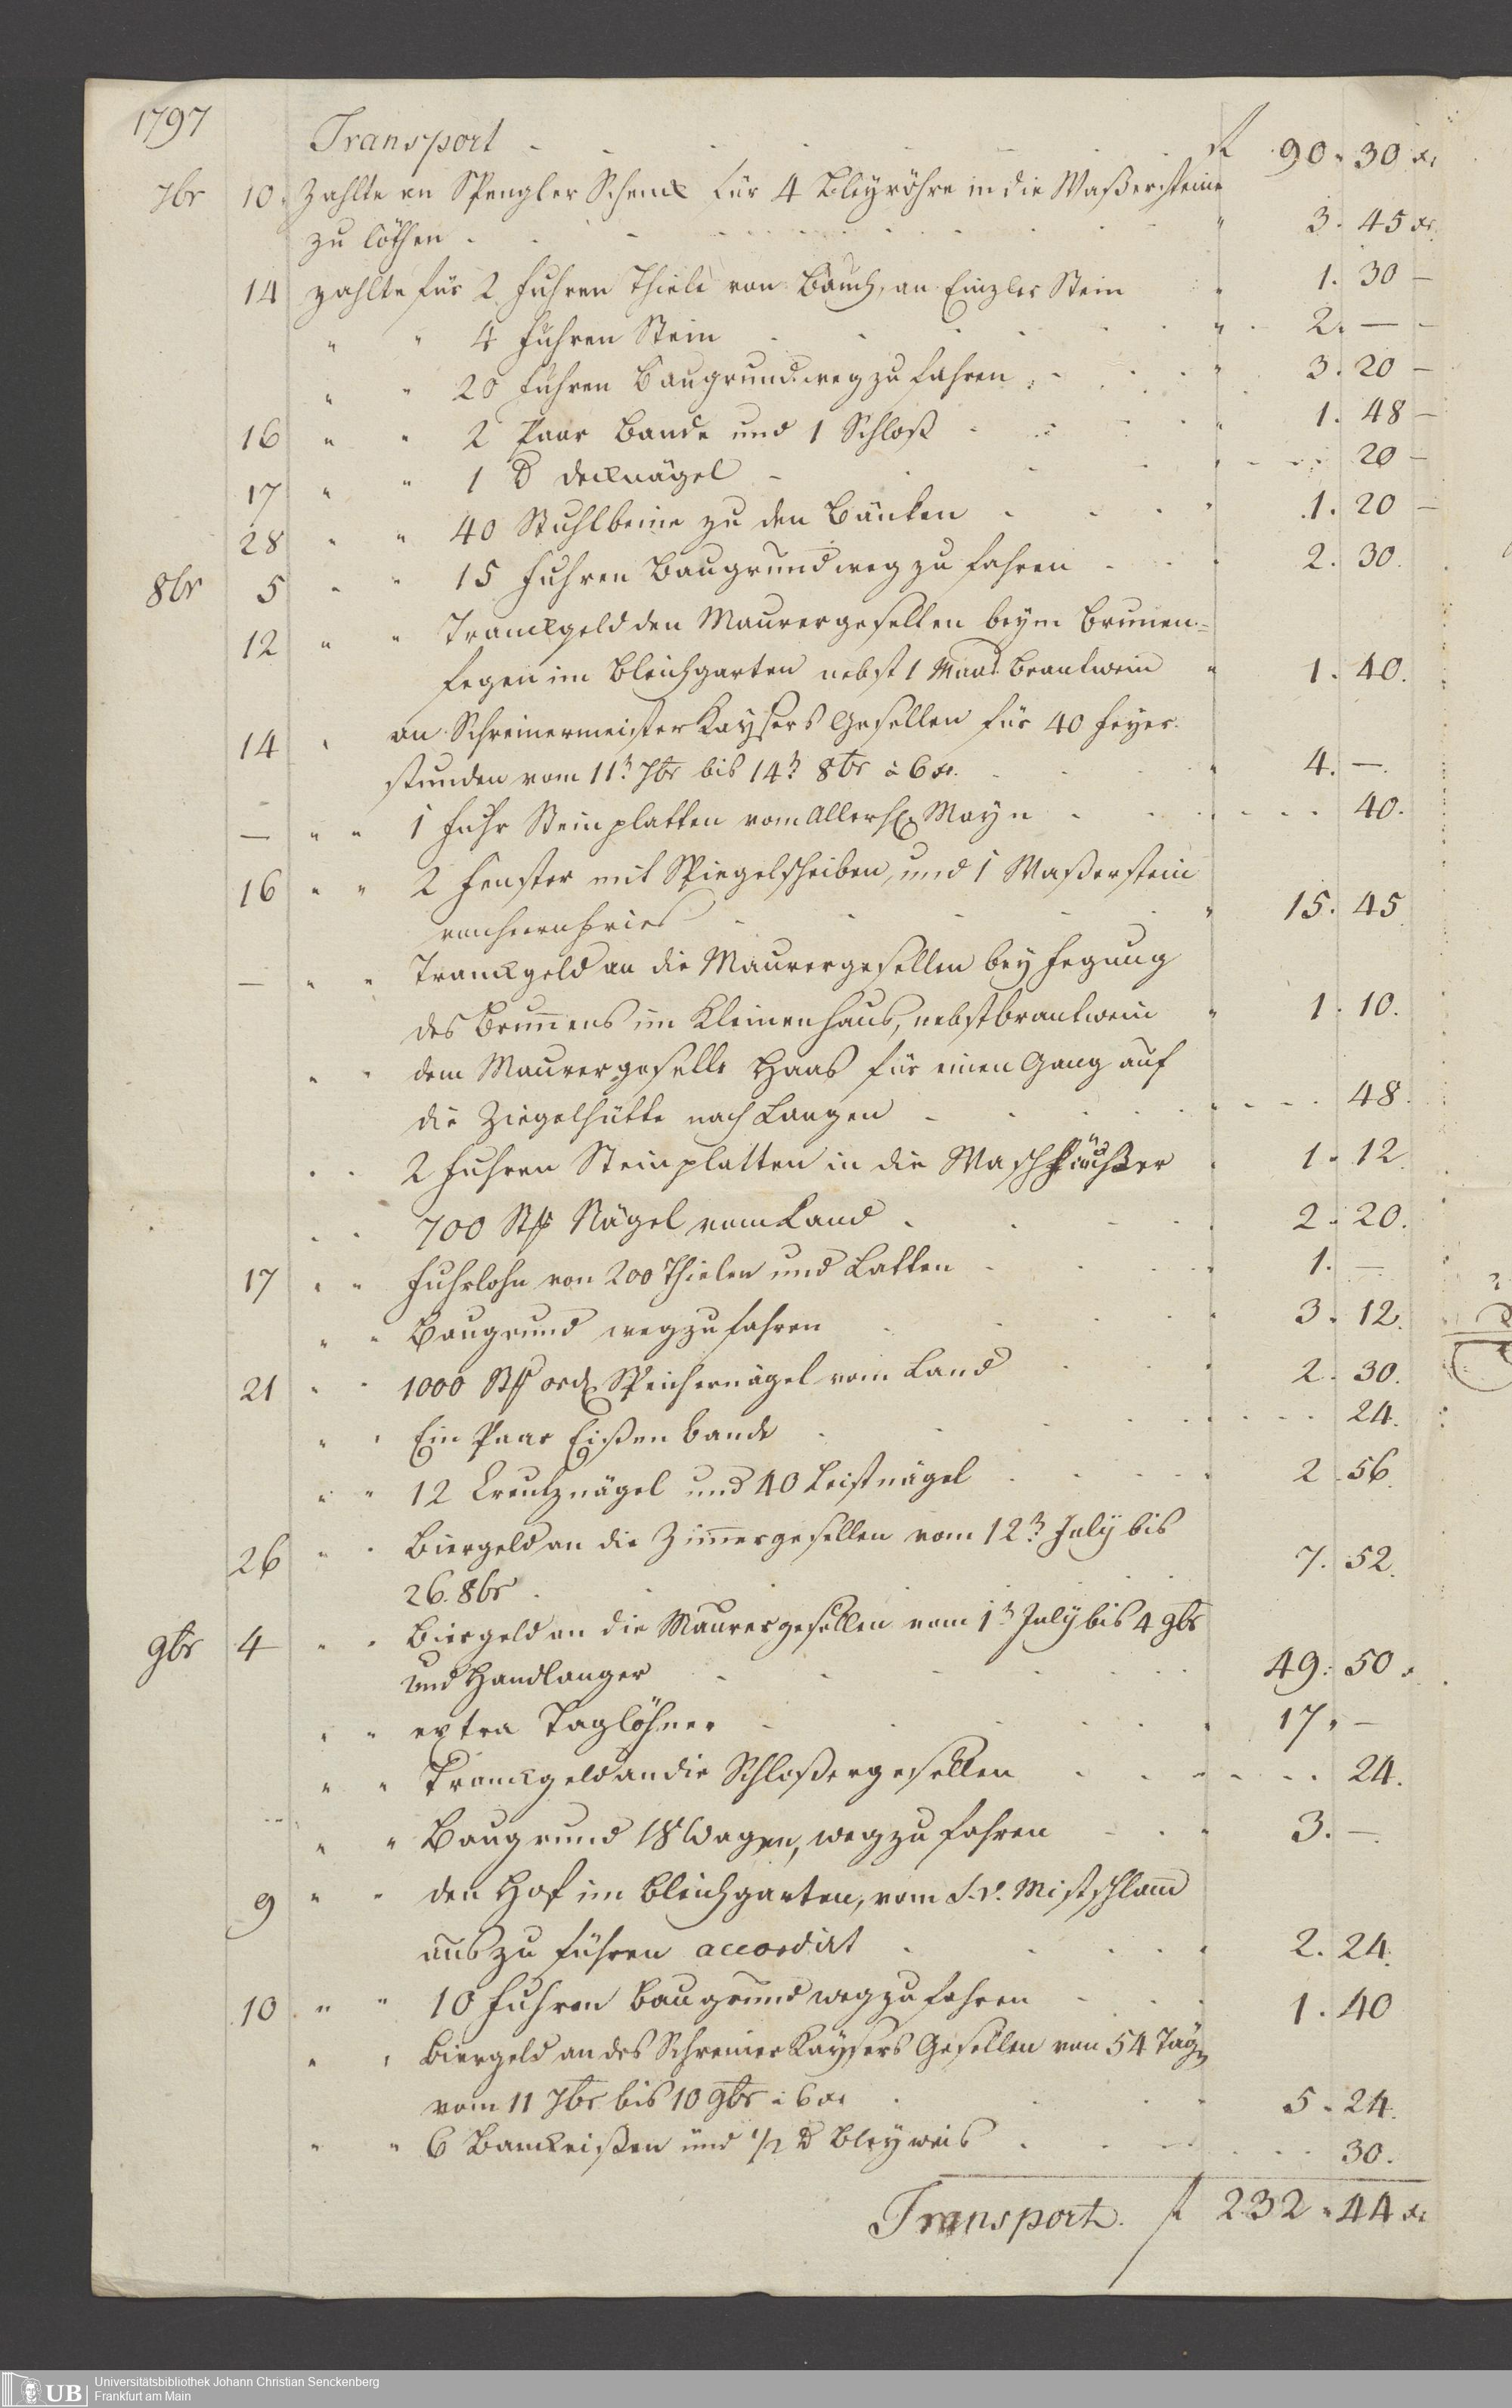 1797
Transport - - - - - - f 90. 30 xr
7br 10. Zahlte an Spengler Schenck für 4 Bleyröhre in die Waßersteine
zu löthen - - - - " 3. 45 xr.
14 zahlte für 2 Fuhren Thiele von Bauch, an Einzler Stein " 1. 30 –
" " 4 Fuhren Stein - - - " 2. — –
" " 20 Fuhren Baugrund weg zu fahren - - " 3. 20 –
16 " " 2 Paar Bande und 1 Schloß - - " 1. 48 –
17 " " 1 ℔ Decknägel - - - 20 –
28 " " 40 Stuhlbeine zu den Bänken - - " 1. 20 –
8br 5 " " 15 Fuhren Baugrund weg zu fahren - - 2. 30.
12 " " Tranckgeld den Maurergesellen beym Brunen=
fegen im Bleichgarten nebst 1 Maas Brantwein " 1. 40.
14 " an Schreinermeister Kaysers Gesellen für 40 Feyer
stunden vom 11t. 7br bis 14t. 8br à 6 xr. - - " 4. —.
— " " 1 Fuhr Steinplatten vom Allerh. Mayn - - - 40.
16 " " 2 Fenster mit Spiegelscheiben, und 1 Waßerstein
von Herrn Fries - - - " 15. 45
— " " Tranckgeld an die Maurergesellen bey Fegung
des Brunnens im Kleinenhaus, nebst brantwein " 1. 10.
" " dem Maurergeselle Haas für einen Gang auf
die Ziegelhütte nach Langen - - - 48.
" " 2 Fuhren Steinplatten in die Waschhäußer " 1. 12.
" " 700 Stk Nägel vom Land - - - 2. 20.
17 " " Fuhrlohn von 200 Thielen und Latten - - 1. —
" " Baugrund weg zu fahren - - - 3. 12.
21 " " 1000 Stk ord. Speichernägel vom Land - - 2. 30.
" " Ein Paar Eißenbande - - - 24.
" " 12 Creutznägel und 40 Leistnägel - - 2. 56.
26 " " Biergeld an die Zimergesellen vom 12t. July bis
26. 8br - - - 7. 52.
9br 4 " " Biergeld an die Maurergesellen vom 1t. July bis 4 9br
und Handlanger - - - 49. 50.
" " extra Taglöhner - - - 17. —
" " Tranckgeld an die Schloßergesellen - - - 24.
" " Baugrund 18 Wagen, weg zu fahren - - 3. —.
9 " " den Hof im Bleichgarten, vom S.V. Mistschlamm
aus zu führen accordirt - - - 2. 24.
10 " " 10 Fuhren Baugrund weg zu fahren - - 1. 40
" " Biergeld an des Schreiner Kaysers Gesellen von 54 Tägn
vom 11 7br bis 10 9br à 6 xr - - 5. 24.
" " 6 Banckeißen und 1/2 ℔ Bleyweis - - - 30.
Transport. f 232. 44 xr
UB Universitätsbibliothek Johann Christian Senckenberg
Frankfurt am Main